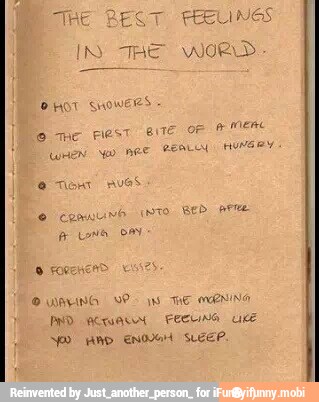 THE BEST FEELINGS
IN THE WORLD.
• HOT SHOWERS.
• THE FIRST BITE OF A MEAL
WHEN YOU ARE REALLY HUNGRY.
• TIGHT HUGS.
• CRAWLING INTO BED AFTER
A LONG DAY.
• FOREHEAD KISSES.
• WAKING UP IN THE MORNING
AND ACTUALLY FEELING LIKE
YOU HAD ENOUGH SLEEP.
Reinvented by Just_another_person_ for iFunny :)
ifunny.mobi